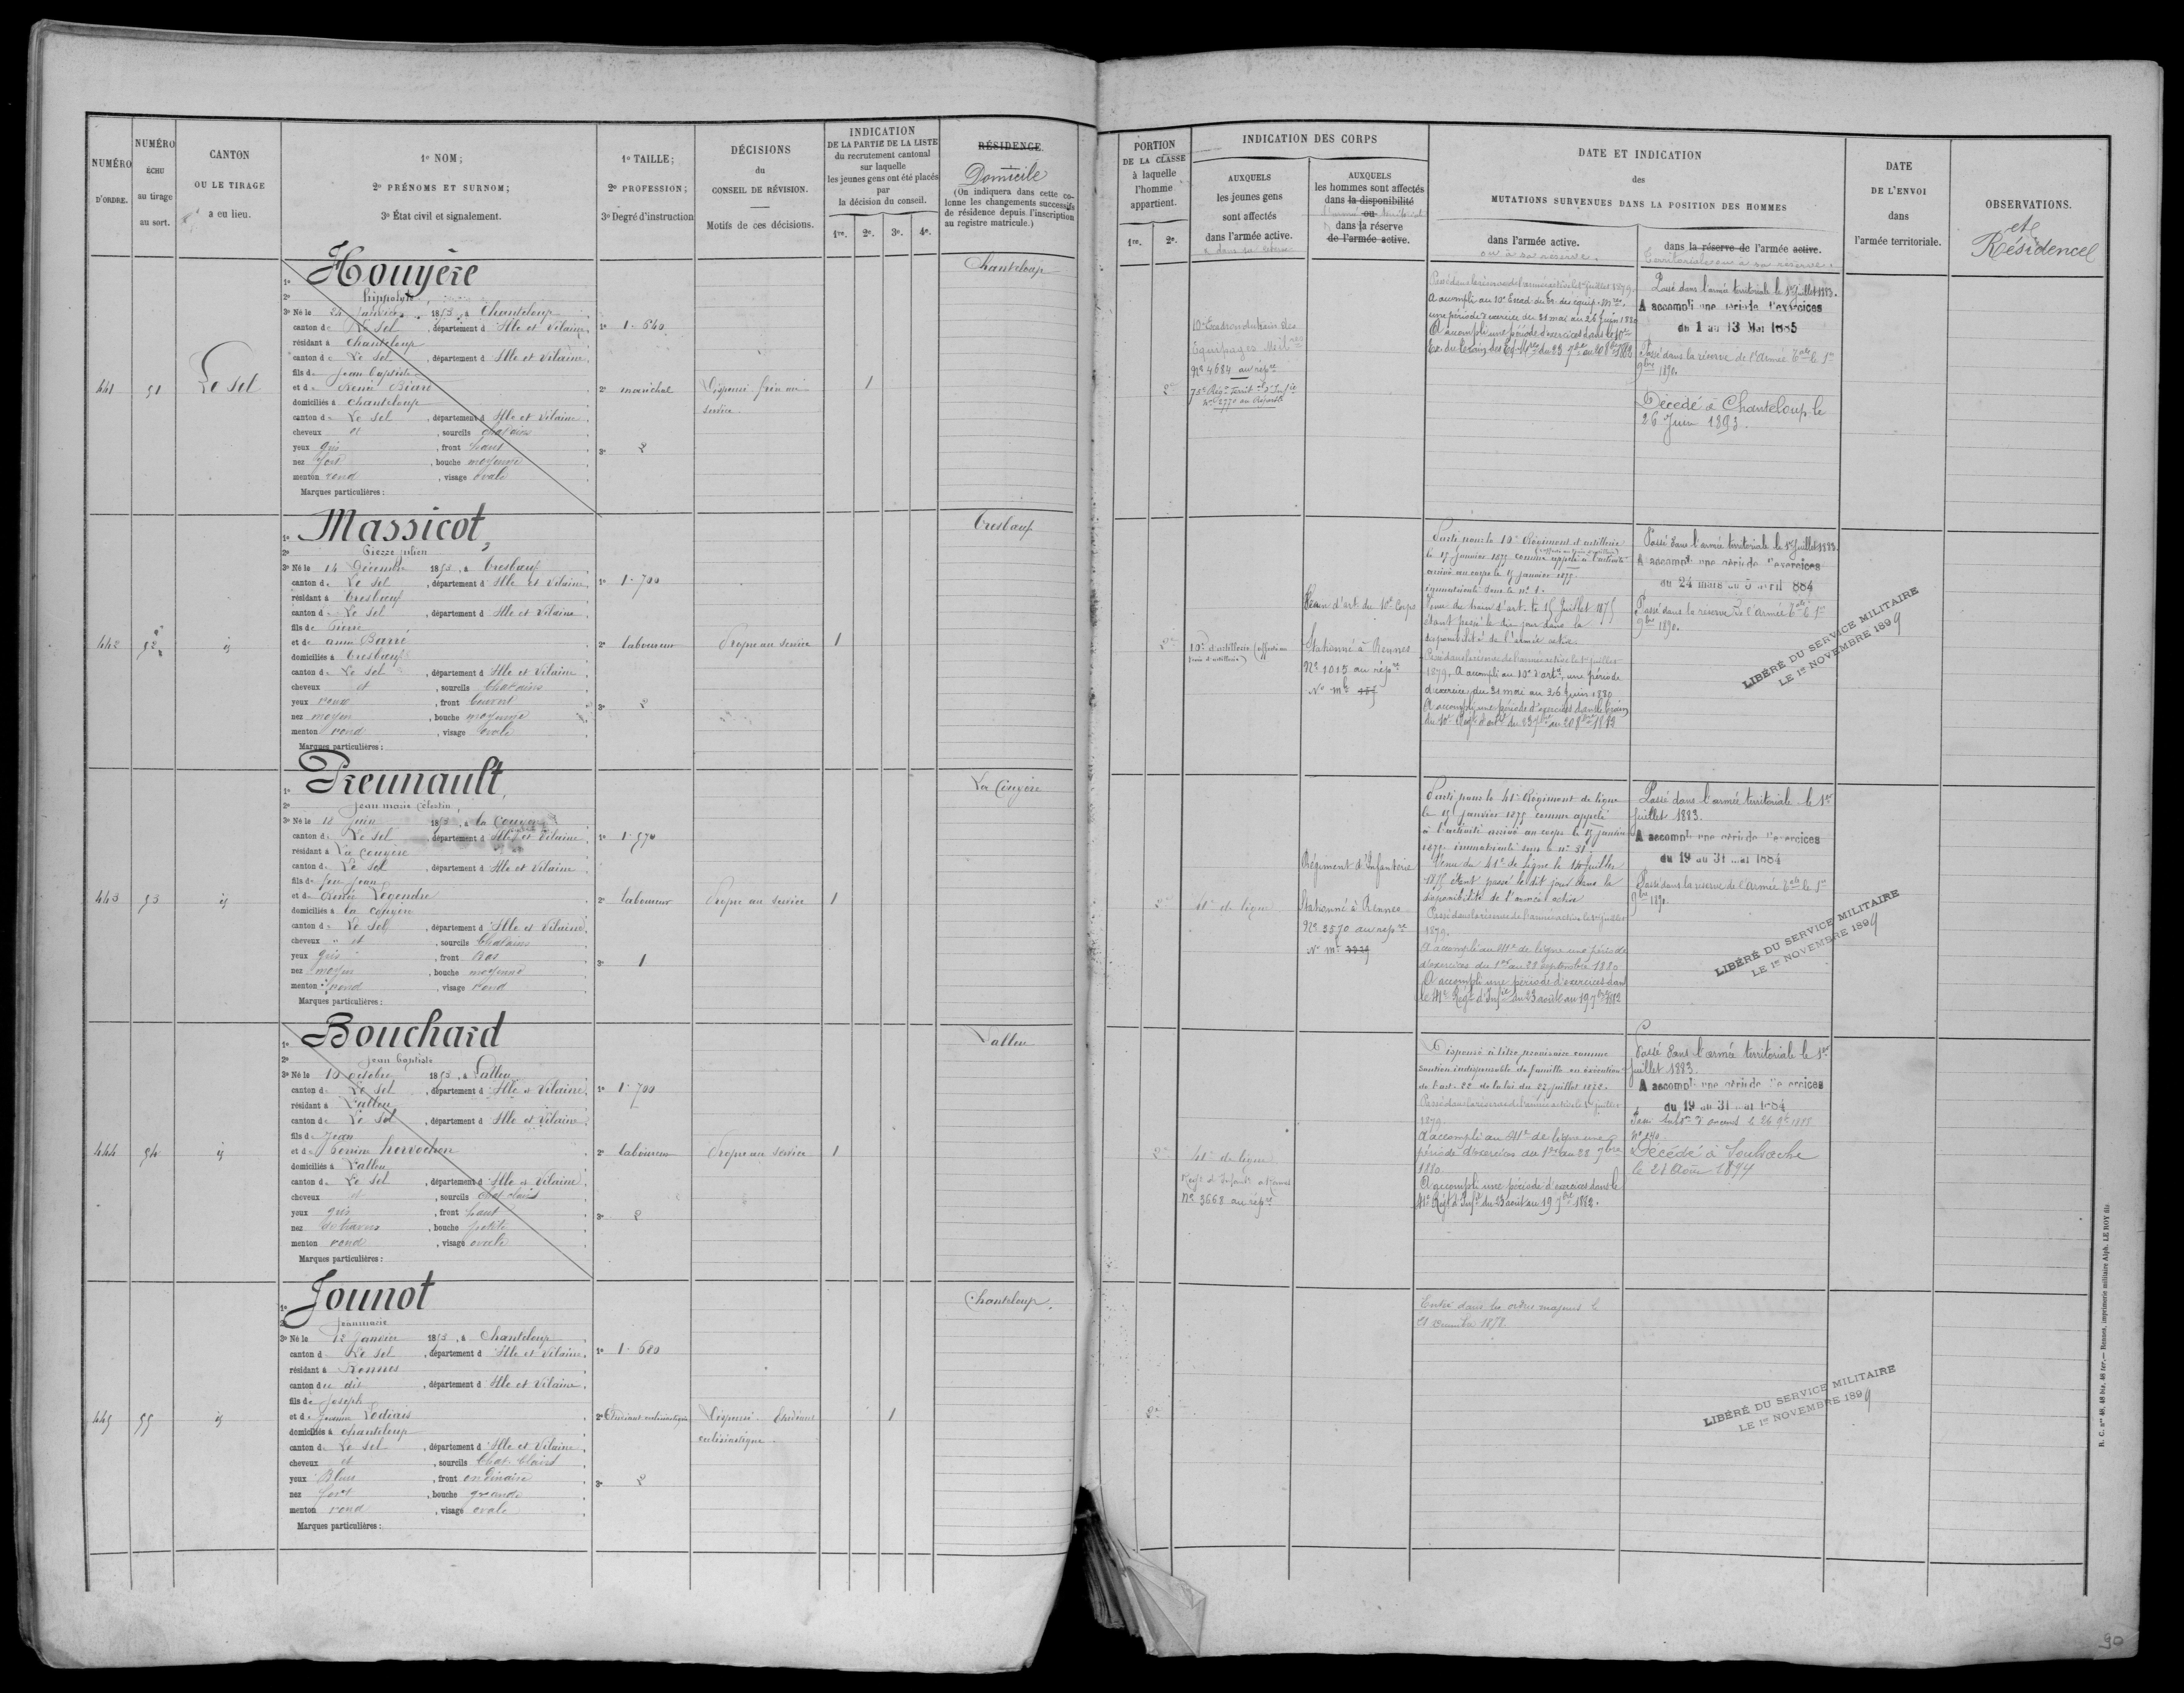 NUMÉRO
D'ORDRE.
NUMÉRO
ÉCHU
au tirage
au sort.
CANTON
OU LE TIRAGE
a eu lieu.
1º NOM;
2º PRÉNOMS ET SURNOM;
3º État civil et signalement.
1º TAILLE;
2º PROFESSION;
3º Degré d'instruction
DÉCISIONS
du
CONSEIL DE RÉVISION.
Motifs de ces décisions.
INDICATION
DE LA PARTIE DE LA LISTE
du recrutement cantonal
sur laquelle
les jeunes gens ont été placés
par
la décision du conseil.
1re. 2e. 3e. 4e.
RÉSIDENCE
Domicile
(On indiquera dans cette co-
lonne les changements successifs
de résidence depuis l'inscription
au registre matricule.)
441
51
Le Sel
1º Houyère
2º hippolyte
3º Né le 24 Janvier 1853, à Chanteloup
canton de Le Sel, département d Ille et Vilaine,
résidant à Chanteloup
canton de Le Sel, département d Ille et Vilaine,
fils de Jean Baptiste
et de Renée Biard
domiciliés à Chanteloup
canton de Le Sel, département d Ille et Vilaine,
cheveux et, sourcils chatains
yeux gris, front haut
nez fort, bouche moyenne
menton rond, visage ovale
Marques particulières :
1º 1.640
2º maréchal
3º 2
Dispensé frère au
service
1
Chanteloup
442
52
id
1º Massicot,
2º Pierre julien
3º Né le 14 Décembre 1853, à Tresboeuf
canton de Le Sel, département d Ille et Vilaine,
résidant à Tresboeuf
canton de Le Sel, département d Ille et Vilaine,
fils de Pierre
et de anne Barré
domiciliés à Tresboeuf
canton de Le Sel, département d Ille et Vilaine,
cheveux et, sourcils Chatains
yeux roux, front couvert
nez moyen, bouche moyenne
menton rond, visage ovale
Marques particulières :
1º 1.700
2º laboureur
3º 2
Propre au service
1
Tresboeuf
443
53
id
1º Preunault,
2º Jean marie Célestin,
3º Né le 12 Juin 1853, à la Couyère
canton de Le Sel, département d Ille et Vilaine,
résidant à La Couyère
canton de Le Sel, département d Ille et Vilaine
fils de feu Jean
et de Renée Legendre
domiciliés à la Couyère
canton de Le Sel, département d Ille et Vilaine,
cheveux " et, sourcils Chatains
yeux gris, front bas
nez moyen, bouche moyenne
menton rond, visage rond
Marques particulières :
1º 1.570
2º laboureur
3º 1
Propre au service
1
La Couyère
444
54
id
1º Bouchard
2º Jean baptiste
3º Né le 10 octobre 1853, à Lalleu
canton de Le Sel, département d Ille et Vilaine,
résidant à Lalleu
canton de Le Sel, département d Ille et Vilaine,
fils de Jean
domiciliés à Lalleu
canton de Le Sel, département d Ille et Vilaine,
cheveux et, sourcils chat clairs
yeux gris, front haut
nez, bouche petite
menton rond, visage ovale
Marques particulières :
1º 1.700
2º laboureur
3º 2
Propre au service
1
Lalleu
445
55
id
1º Jounot
2º Jeanmarie
3º Né le 12 Janvier 1853, à Chanteloup
canton d Le Sel, département d Ille et Vilaine,
résidant à Rennes
canton du dit, département d Ille et Vilaine,
fils de Joseph
domiciliés à Chanteloup
canton de Le Sel, département d Ille et Vilaine,
cheveux et, sourcils Chat. Clairs
yeux Bleus, front ordinaire
nez fort, bouche grande
menton rond, visage ovale
Marques particulières :
1º 1.680
2º Etudiant ecclésiastique
3º 2
Dispensé. Etudiant
ecclésiastique
1
Chanteloup.
PORTION
DE LA CLASSE
à laquelle
l'homme
appartient.
1re. 2e.
INDICATION DES CORPS
AUXQUELS
les jeunes gens
sont affectés
dans l'armée active.
AUXQUELS
les hommes sont affectés
dans la disponibilité
ou
dans la réserve
de l'armée active.
DATE ET INDICATION
des
MUTATIONS SURVENUES DANS LA POSITION DES HOMMES
dans l'armée active.
ou à sa réserve.
dans la réserve de l'armée active.
Territoriale ou à sa réserve.
DATE
DE L'ENVOI
dans
l'armée territoriale.
OBSERVATIONS.
et
Résidence
2e
10e Escadron du train des
Equipages Milres
No 4684 au répre
75e Régt territ al d'Infie
No 2770 au Répert
Passé dans la réserve de l'armée active le 1er Juillet 1879.
A accompli au 10e Escad. du tr. des équip. mres
une période d'exercice du 31 mai au 26 Juin 1880
A accompli une période d'exercices dans le 10e
Passé dans l'armée territoriale le 1er Juillet 1883.
A accompli une période d'exercices
du 1 au 13 Mai 1885
Passé dans la réserve de l'Armée Tale le 1er
9bre 1890.
Décédé à Chanteloup le
26 Juin 1893.
2e
10e d'artillerie (affecté au
train d'artillerie)
Train d'art. du 10e Corps
Stationné à Rennes
No 1015 au répre
No Mle 157
Parti pour le 10e Régiment d'artillerie
le 17 janvier 1875 comme appelé à l'activité
arrivé au corps le 17 janvier 1875.
immatriculé sous le no 1.
Venu du train d'art. le 15 Juillet 1875
étant passé le dit jour dans la
disponibilité de l'armée active.
Passé dans la réserve de l'armée active le 1er juillet
1879. A accompli au 10e d'artie, une période
d'exercices du 31 mai au 26 Juin 1880
A accompli une période d'exercices dans le train
du 10e Régt d'artie du 23 7bre au 20 8bre 1882
Passé dans l'armée territoriale le 1er Juillet 1883.
A accompli une période d'exercices
du 24 mars au 5 avril 1884
Passé dans la réserve de l'Armée Tale le 1er
9bre 1890.
LIBÉRÉ DU SERVICE MILITAIRE
LE 1er NOVEMBRE 1899
2e
41e de ligne
Régiment d'Infanterie
Stationné à Rennes
No 3570 au répre
No Mle
Parti pour le 41e Régiment de ligne
le 17 janvier 1875 comme appelé
à l'activité arrivé au corps le 17 janvier
1875 immatriculé sous le no
Venu du 41e de Ligne le 14 Juillet
1875 étant passé le dit jour dans la
disponibilité de l'armée active
Passé dans la réserve de l'armée active le 1er juillet
1879.
A accompli au 41e de ligne une période
d'exercices du 1er au 28 septembre 1880
A accompli une période d'exercices dans
le 41e Régt d'Infie du 23 août au 19 7bre 1882
Passé dans l'armée territoriale le 1er
Juillet 1883.
A accompli une période d'exercices
du 19 au 31 mai 1884
Passé dans la réserve de l'Armée Tale le 1er
9bre 1890
LIBÉRÉ DU SERVICE MILITAIRE
LE 1er NOVEMBRE 1899
2e
41e de ligne
Régt d'Infant à Rennes
No 3668 au répre
Dispensé à titre provisoire comme
soutien indispensable de famille en exécution
de l'art. 22 de la loi du 27 juillet 1872.
Passé dans la réserve de l'armée active le 1er juillet
1879.
A accompli au 41e de ligne une
période d'exercices du 1er au 28 7bre
1880
A accompli une période d'exercices dans le
41e Régt d'Infie du 23 août au 19 7bre 1882.
Passé dans l'armée territoriale le 1er
Juillet 1883.
A accompli une période d'exercices
du 19 au 31 mai 1884
No 240
Décédé à Soulvache
le 21 Août 1894
2e
Entré dans les ordres majeurs le
21 décembre 1878.
LIBÉRÉ DU SERVICE MILITAIRE
LE 1er NOVEMBRE 1899
R. C. nos 46, 46 bis, 46 ter.— Rennes, imprimerie militaire Alph. LE ROY fils
90